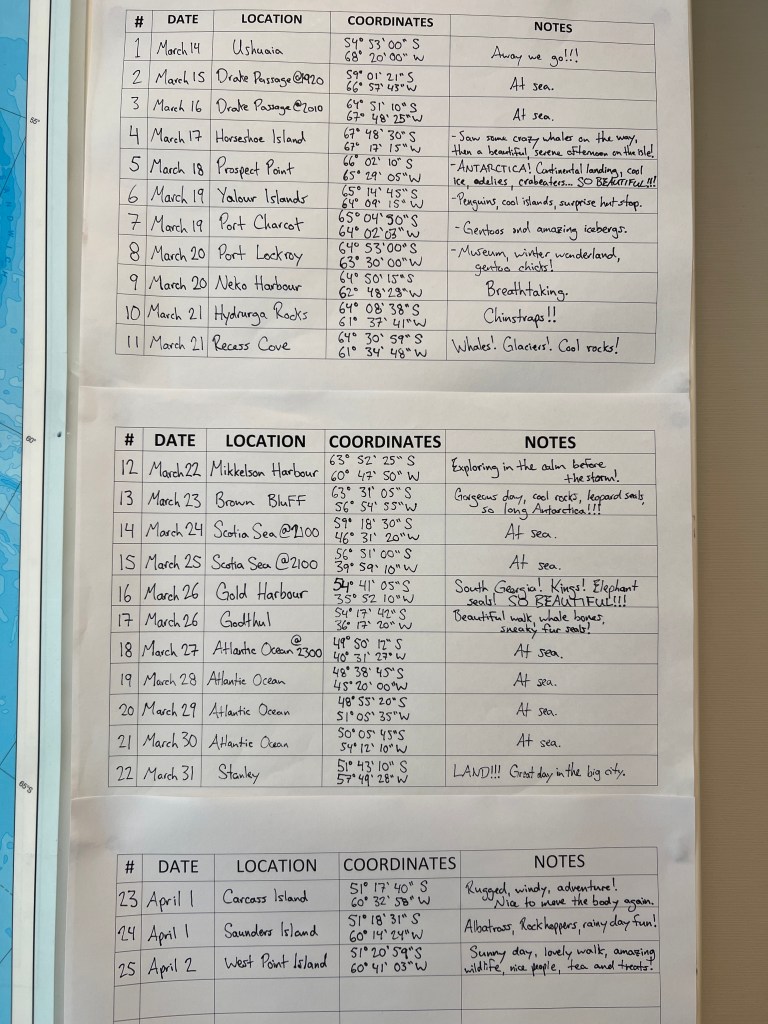 55°
60°
65°S
# DATE LOCATION COORDINATES NOTES
1 March 14 Ushuaia 54° 53' 00" S 68° 20' 00" W Away we go!!!
2 March 15 Drake Passage @1920 59° 01' 21" S 66° 57' 43" W At sea.
3 March 16 Drake Passage @2010 64° 51' 10" S 67° 48' 25" W At sea.
4 March 17 Horseshoe Island 67° 48' 30" S 67° 17' 15" W -Saw some crazy whales on the way, then a beautiful, serene afternoon on the isle!
5 March 18 Prospect Point 66° 02' 10" S 65° 29' 05" W -ANTARCTICA! Continental landing, cool ice, adelies, crabeaters... SO BEAUTIFUL!!!
6 March 19 Yalour Islands 65° 14' 45" S 64° 09' 15" W -Penguins, cool islands, surprise hut stop.
7 March 19 Port Charcot 65° 04' 50" S 64° 02' 03" W -Gentoos and amazing icebergs.
8 March 20 Port Lockroy 64° 53' 00" S 63° 30' 00" W -Museum, winter wonderland, gentoo chicks!
9 March 20 Neko Harbour 64° 50' 15" S 62° 48' 28" W Breathtaking.
10 March 21 Hydrurga Rocks 64° 08' 38" S 61° 37' 41" W Chinstraps!!
11 March 21 Recess Cove 64° 30' 59" S 61° 34' 48" W Whales! Glaciers! Cool rocks!
# DATE LOCATION COORDINATES NOTES
12 March 22 Mikkelson Harbour 63° 52' 25" S 60° 47' 50" W Exploring in the calm before the storm!
13 March 23 Brown Bluff 63° 31' 05" S 56° 54' 55" W Gorgeous day, cool rocks, leopard seals, so long Antarctica!!!
14 March 24 Scotia Sea @2100 59° 18' 30" S 46° 31' 20" W At sea.
15 March 25 Scotia Sea @2100 56° 51' 00" S 39° 59' 10" W At sea.
16 March 26 Gold Harbour 54° 41' 05" S 35° 52 10" W South Georgia! Kings! Elephant seals! SO BEAUTIFUL!!!
17 March 26 Godthul 54° 17' 42" S 36° 17' 20" W Beautiful walk, whale bones, sneaky fur seals!
18 March 27 Atlantic Ocean @ 2300 49° 50' 12" S 40° 31' 27" W At sea.
19 March 28 Atlantic Ocean 48° 38' 45" S 45° 20' 00" W At sea.
20 March 29 Atlantic Ocean 48° 55' 20" S 51° 05' 35" W At sea.
21 March 30 Atlantic Ocean 50° 05' 45" S 54° 12' 10" W At sea.
22 March 31 Stanley 51° 43' 10" S 57° 49' 28" W LAND!!! Great day in the big city.
# DATE LOCATION COORDINATES NOTES
23 April 1 Carcass Island 51° 17' 40" S 60° 32' 58" W Rugged, windy, adventure! Nice to move the body again.
24 April 1 Saunders Island 51° 18' 31" S 60° 14' 24" W Albatross, Rockhoppers, rainy day fun!
25 April 2 West Point Island 51° 20' 59" S 60° 41' 03" W Sunny day, lovely walk, amazing wildlife, nice people, tea and treats!